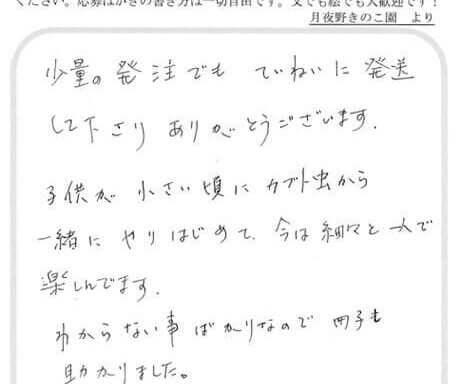 ください。応募はがきの書き方は一切自由です。文でも絵でも大歓迎です！
月夜野きのこ園　より
少量の発注でも ていねいに発送
して下さり ありがとうございます.
子供が 小さい頃に カブト虫から
一緒に やりはじめて、今は細々と一人で
楽しんでます.
わからない事ばかりなので 冊子も
助かりました。